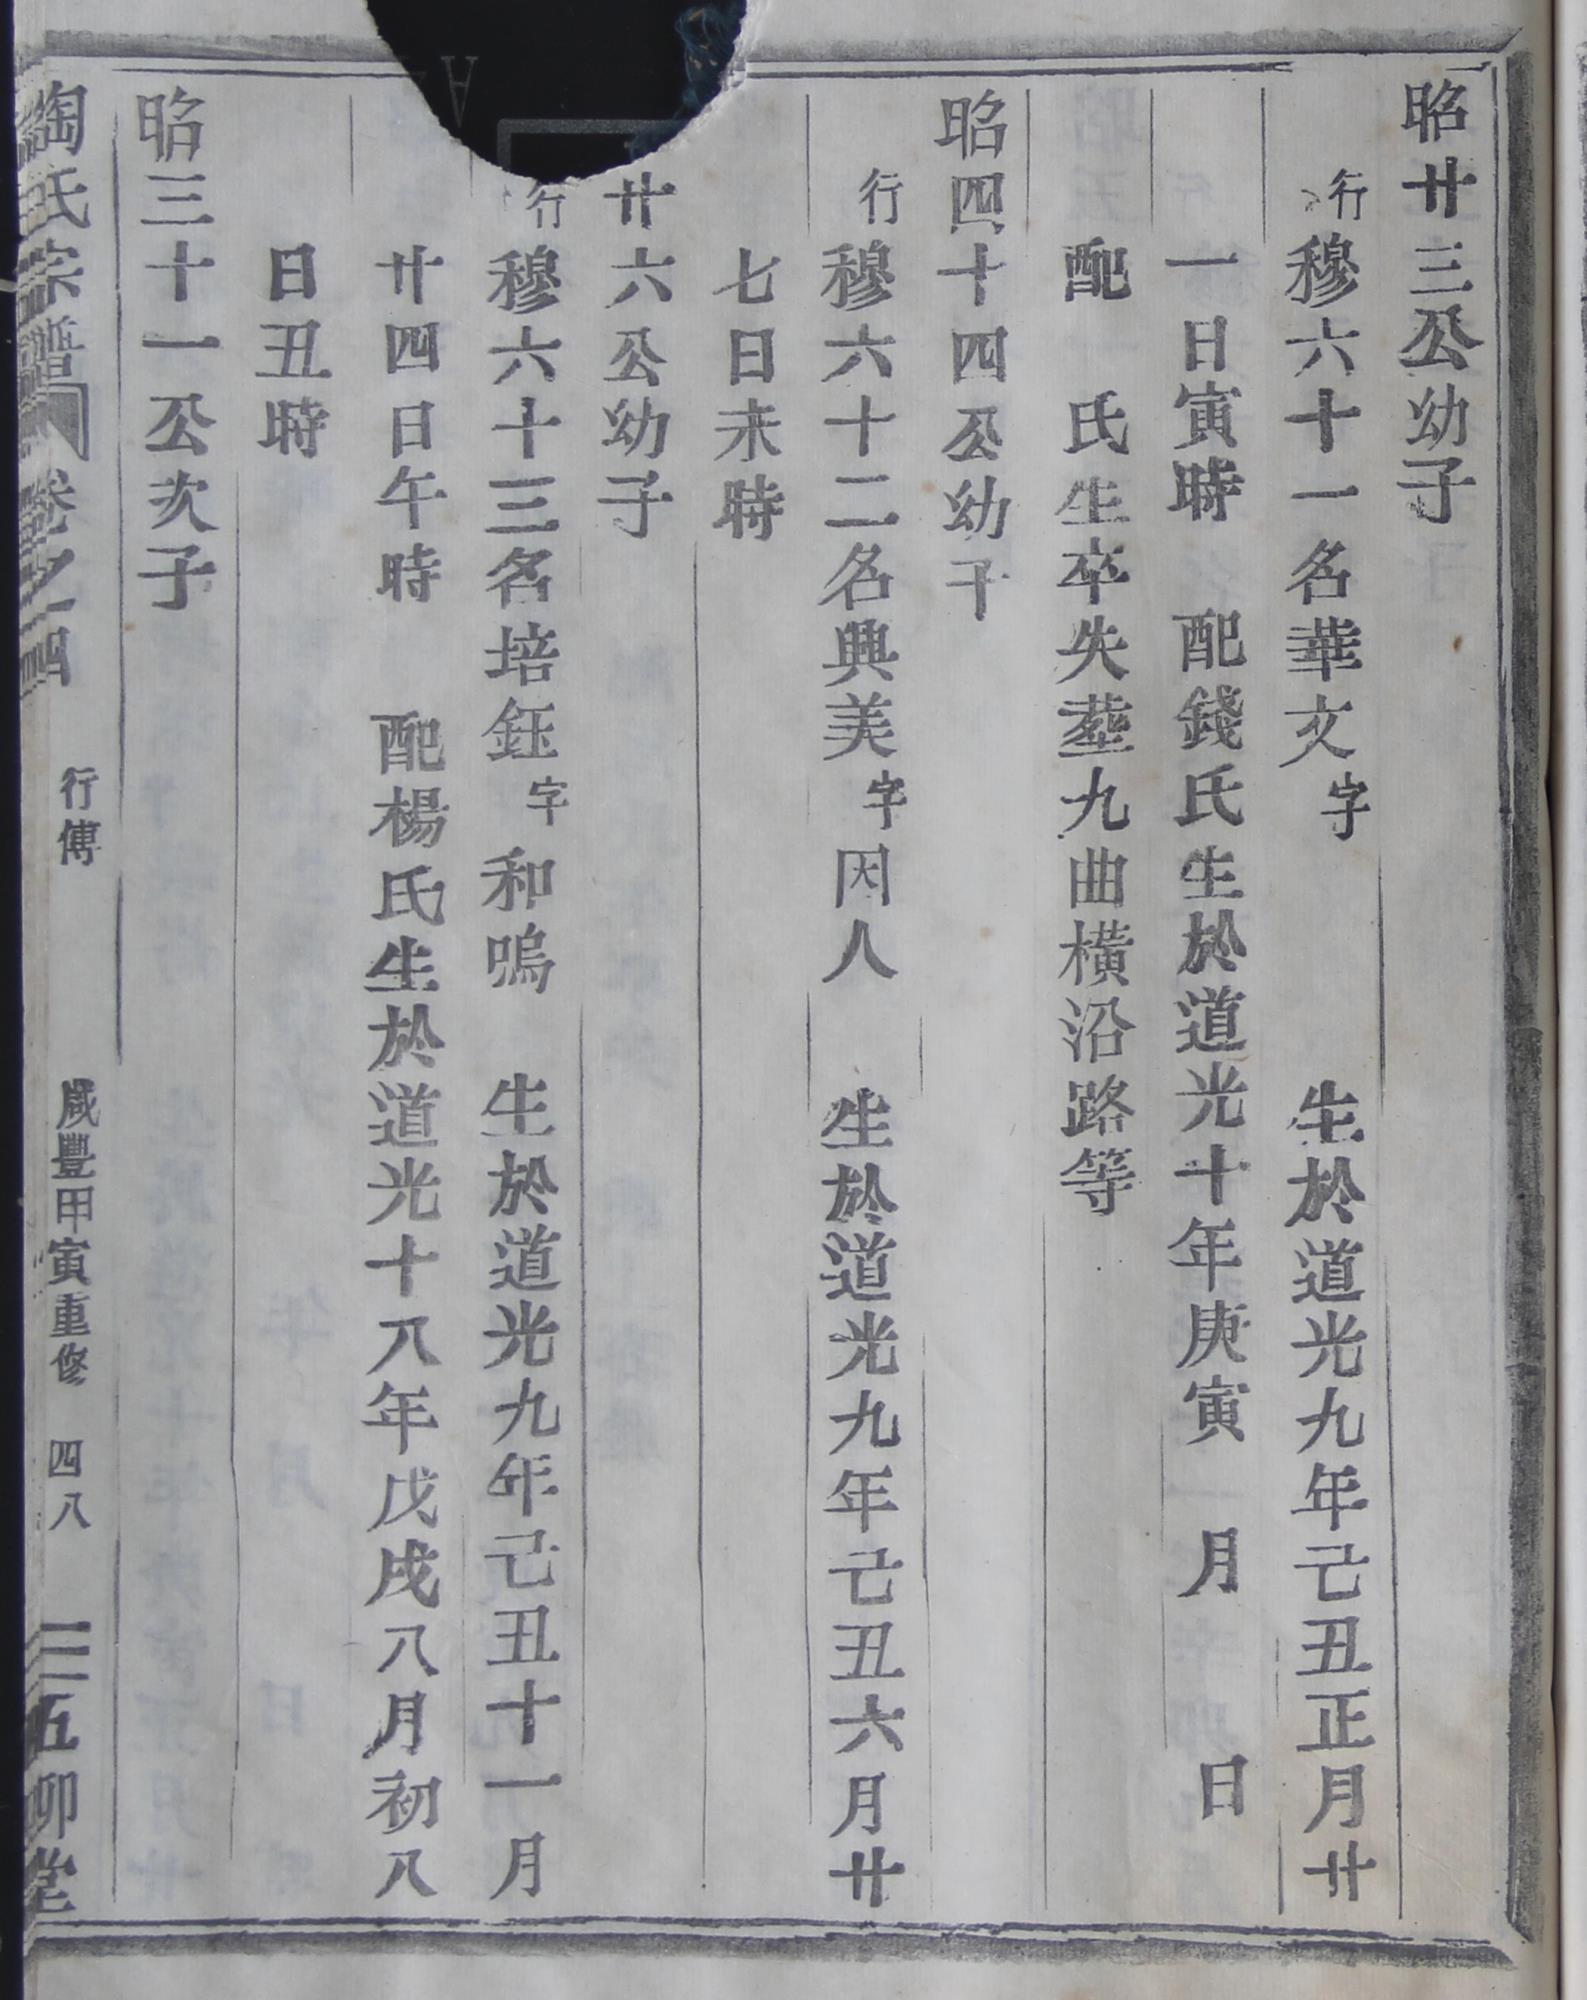 昭廿三公幼子
行穆六十一名華文字 生於道光九年己丑正月廿
一日寅時 配錢氏生於道光十年庚寅 月 日
配 氏生卒失塟九曲橫沿路等
昭四十四公幼子
行穆六十二名興美字因人 生於道光九年己丑六月廿
七日未時
廿六公幼子
行穆六十三名培鈺字和鳴 生於道光九年己丑十一月
廿四日午時 配楊氏生於道光十八年戊戌八月初八
日丑時
昭三十一公次子
陶氏宗譜 卷之四 行傳 咸豐甲寅重修 四八 五柳堂